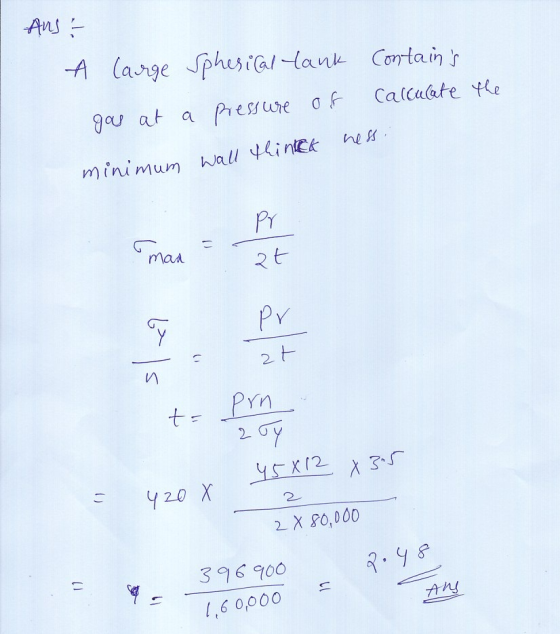 Ans :-
A large spherical tank Contain's
gas at a pressure of Calculate the
minimum wall thinck ness.
σmax = Pr / 2t
σy / n = Pr / 2t
t = Prn / 2σy
= 420 X 45X12 / 2 X 3.5 / 2 X 80,000
= = 396900 / 1,60,000 = 2.48 Ans